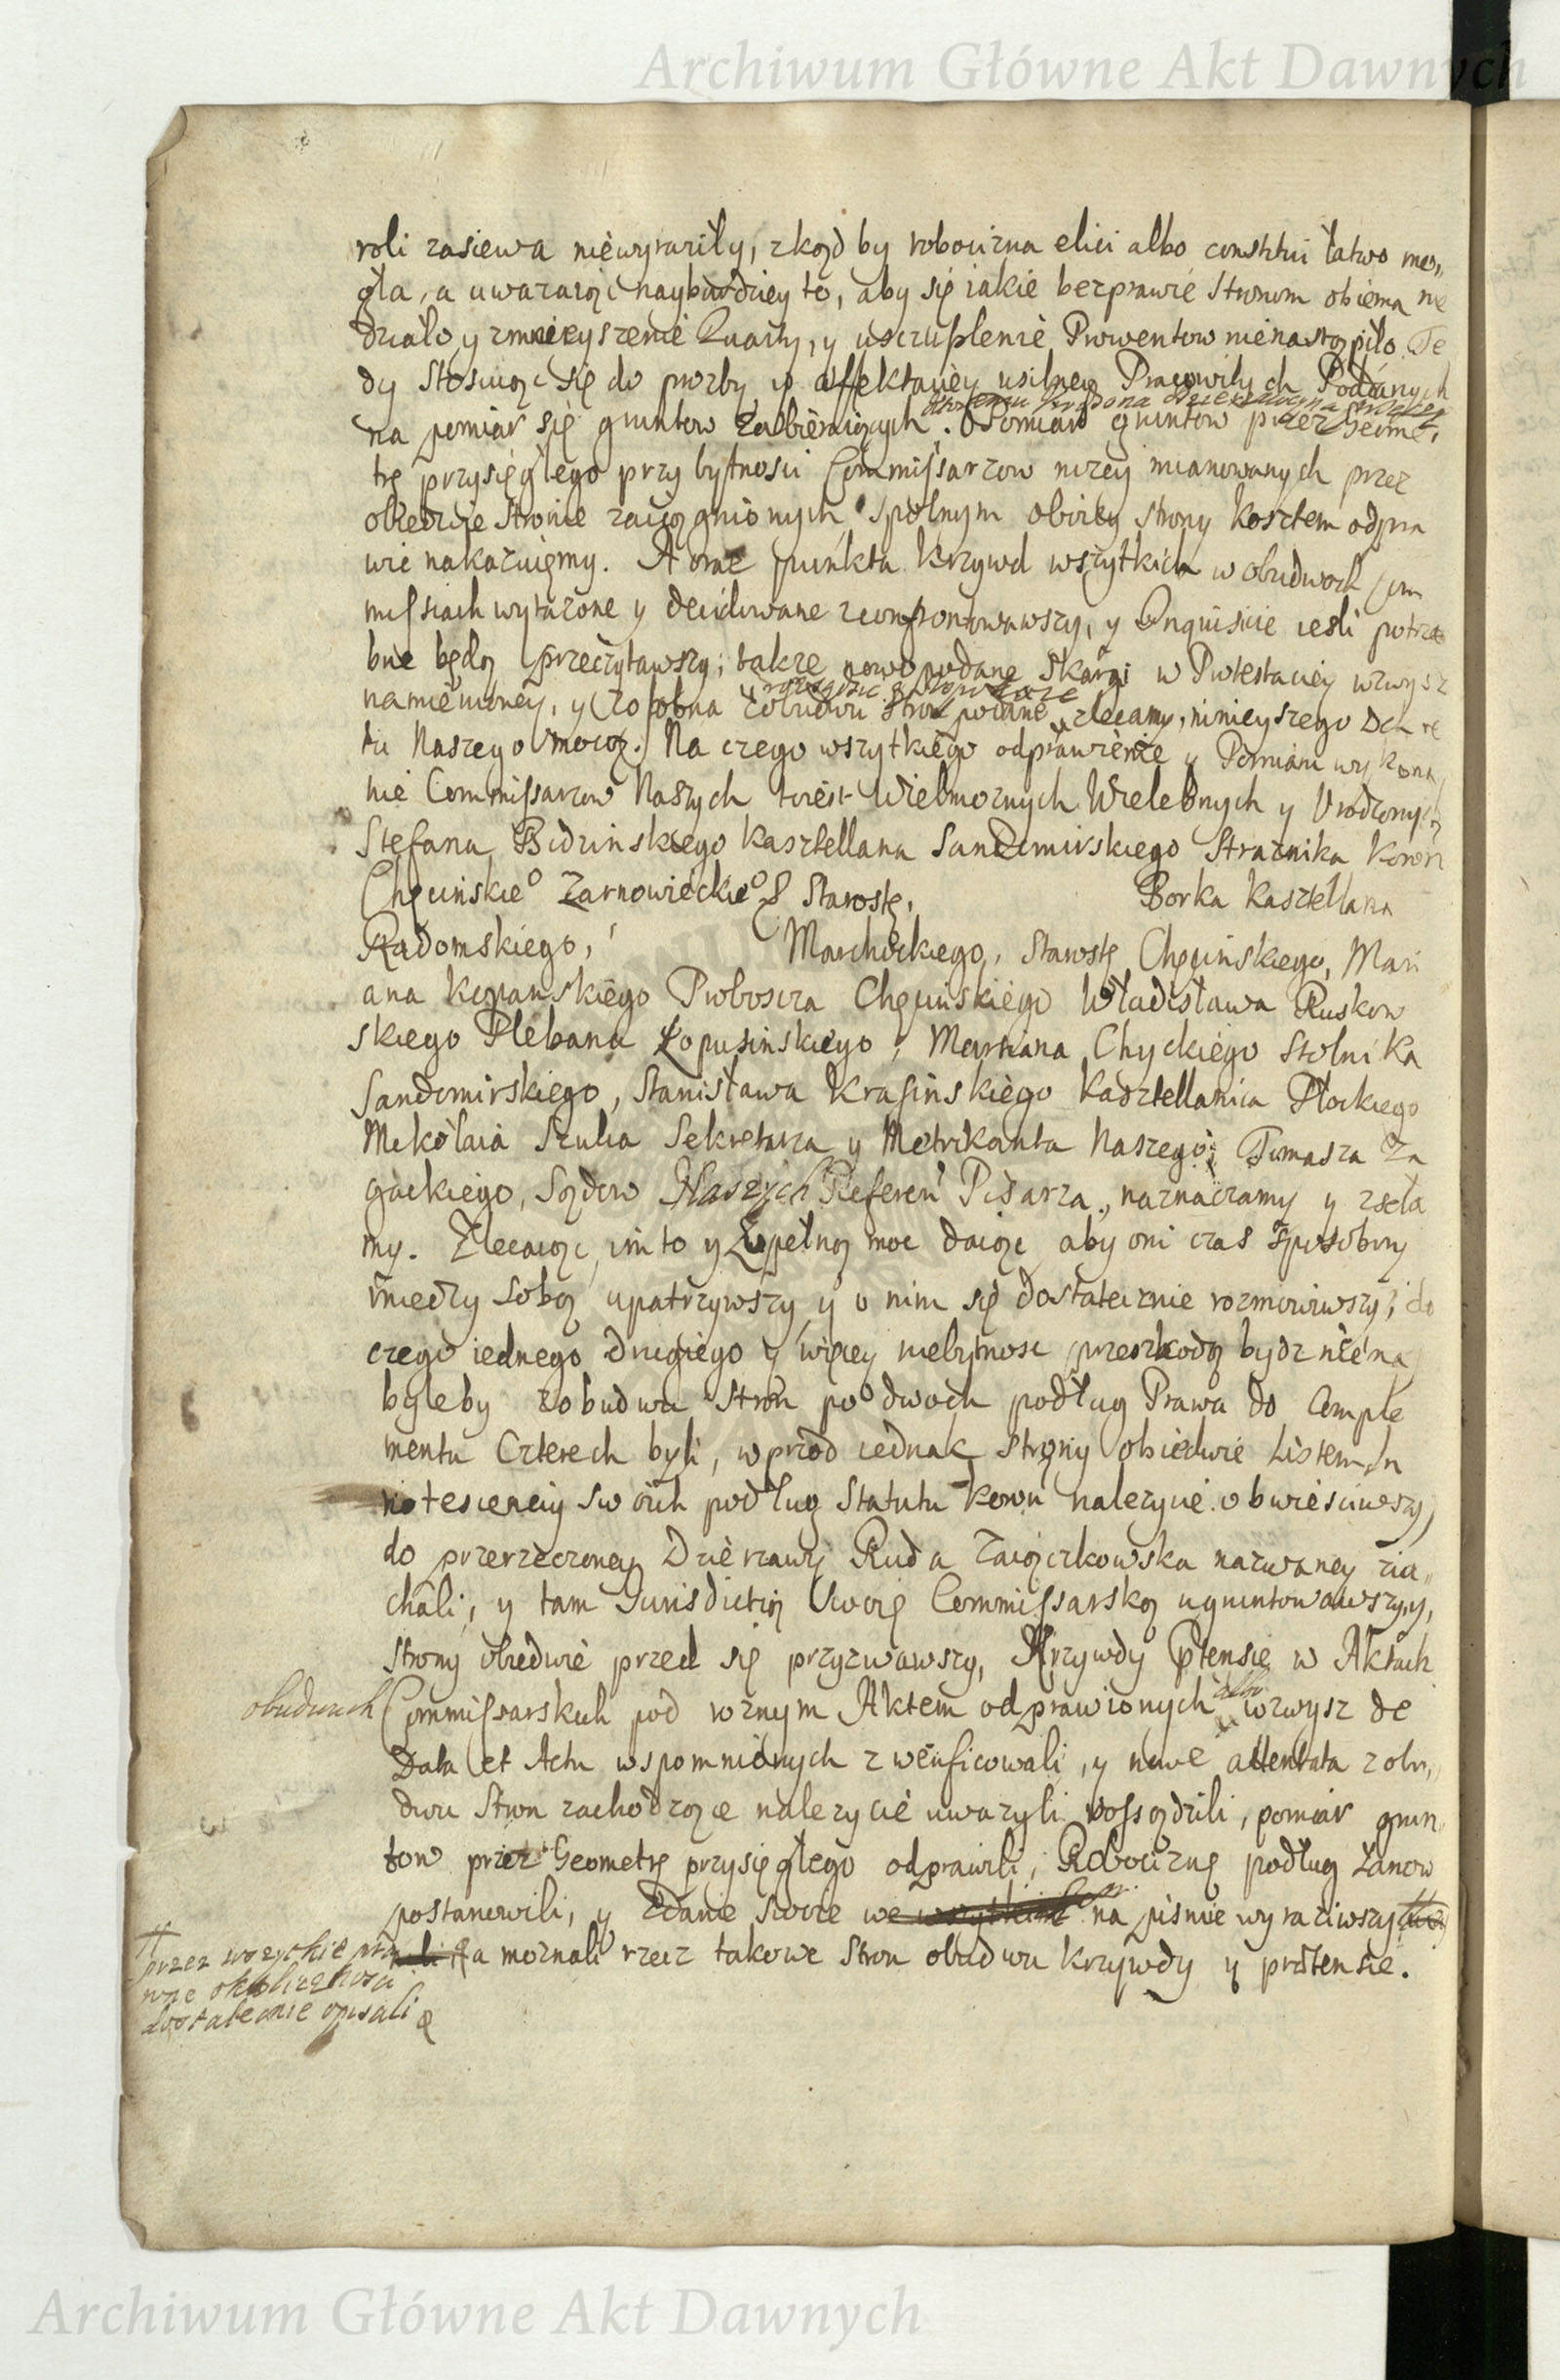 Archiwum Główne Akt Dawnych
roli zasiewa niewyraziły, zkąd by robocizna elici albo constitui łatwo mo„
gła, a uwazaiąc naybardziey to, aby się iakie bezprawie Stronom obiema nie
działo, y zmnieyszenie Kwarty, y usczuplenie Prowentow nienastąpiło. Te
dy Stosuiąc się do prozby, y affektaciey usilney Pracowitych Poddanych
na pomiar się gruntow zabieraiących. Pomiar gruntow przez Geome„
trę przysięgłego przy bytnosci Commissarzow nizey mianowanych przez
obiedwie Stronie zaciągnionych spolnym oboiey strony kosztem odpra
wic nakazuiemy. A oraz punkta krzywd wszytkich w obudwoch Com
missiach wyrazone y decidowane zconfrontowawszy, y Inquisicie iesli potrze
bne będą przeczytawszy; takze nowo podane Skargi w Protestaciey wzwysz
namienioney, y zosobna zobudwu Stron podane zlecamy, ninieyszego Dekre
tu Naszego mocą. Na czego wszytkiego odprawienie y Pomiaru wykona
nie Commissarzow Naszych to iest Wielmoznych Wielebnych y Urodzonych
Stefana Bidzinskiego Kasztellana Sandomirskiego Straznika Koron
Chęcinskieo Zarnowieckieo Starostę, Borka Kasztellana
Radomskiego, Marchockiego, Starostę Chęcinskiego, Mari
ana Kepanskiego Proboscza Chęcinskiego Władisława Ruskow
skiego Plebana Łopusinskiego, Marciana Chyckiego Stolnika
Sandomirskiego, Stanisława Krasinskiego Kasztellanica Płockiego
Mikołaia Szulca Sekretarza y Metrikanta Naszego; Tomasza Za
gackiego, Sądow Naszych Referen Pisarza, naznaczamy y zsyła
my. Zlecaiąc im to y Zupełną moc daiąc aby oni czas sposobny
miedzy sobą upatrzywszy y o nim się dostatecznie rozmowiwszy, do
czego iednego drugiego y więcey niebytnosc przeszkodą bydz niema
byleby zobudwu Stron po dwoch podług Prawa do Comple
mentu Czterech byli, wprzod iednak Strony obiedwie Listem In
notescenciy swoich podług Statutu Koron nalezycie obwiesciwszy,
do przerzeczoney Dzierzawy Ruda Zaiączkowska nazwaney zia„
chali, y tam Jurisdictią Swoię Commissarską ugruntowawszy,
Strony obiedwie przed się przyzwawszy, Krzywdy Ptensie w Aktach
obudwuch Commissarskich pod roznym Aktem odprawionych albo wzwysz de
Data et Actu wspomnionych zwerificowali, y nowe attentata zobu„
dwu Stron zachodzące nalezycie uwazyli, rossądzili, pomiar grun„
tow przez Geometrę przysięgłego odprawili, Robociznę podług Łanow
postanowili, y Zdanie Swoie we wszytkim na pismie wyraziwszy
a moznali rzecz takowe Stron obudwu krzywdy y prætensie.
przez wszytkie pra
wne okoliczkosci
dostatecnie opisali
Archiwum Główne Akt Dawnych